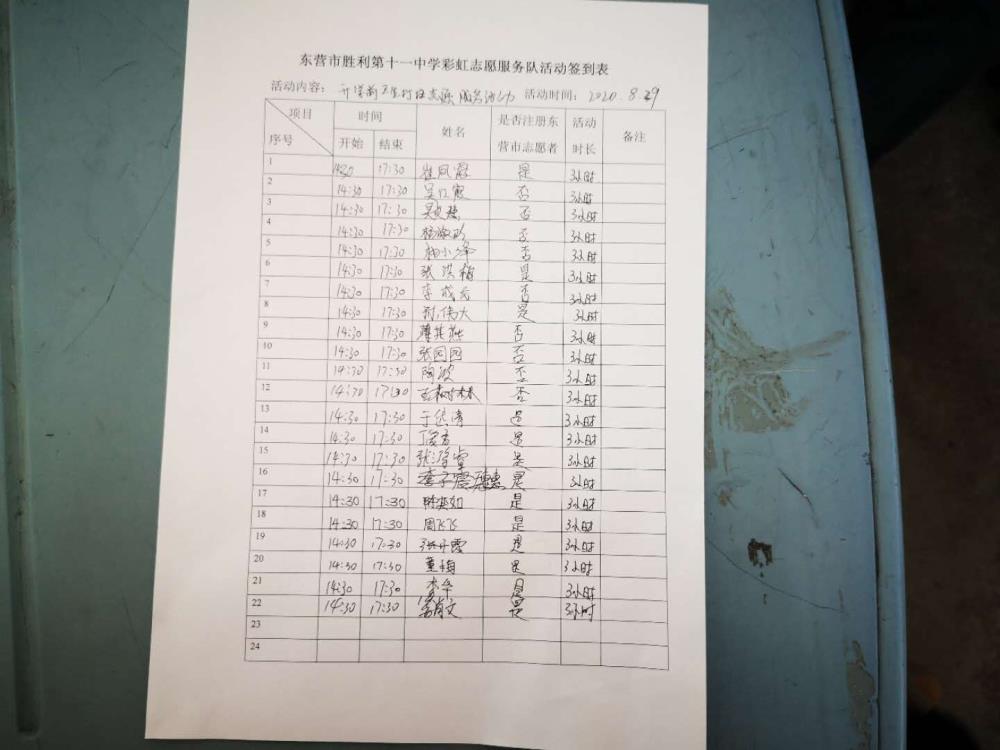 东营市胜利第十一中学彩虹志愿服务队活动签到表
活动内容： 服务活动 活动时间：2020.8.29
项目 时间 姓名 是否注册东 活动 备注
序号 开始 结束 营市志愿者 时长
1 14:30 17:30 是 3小时
2 14:30 17:30 否 3小时
3 14:30 17:30 否 3小时
4 14:30 17:30 否 3小时
5 14:30 17:30 杨小泽 否 3小时
6 14:30 17:30 张洪梅 是 3小时
7 14:30 17:30 李成云 否 3小时
8 14:30 17:30 伟大 是 3小时
9 14:30 17:30 否 3小时
10 14:30 17:30 张园园 否 3小时
11 14:30 17:30 陶波 否 3小时
12 14:30 17:30 否 3小时
13 14:30 17:30 是 3小时
14 14:30 17:30 是 3小时
15 14:30 17:30 是 3小时
16 14:30 17:30 是 3小时
17 14:30 17:30 是 3小时
18 14:30 17:30 周飞飞 是 3小时
19 14:30 17:30 张丹霞 是 3小时
20 14:30 17:30 董梅 是 3小时
21 14:30 17:30 是 3小时
22 14:30 17:30 是 3小时
23
24